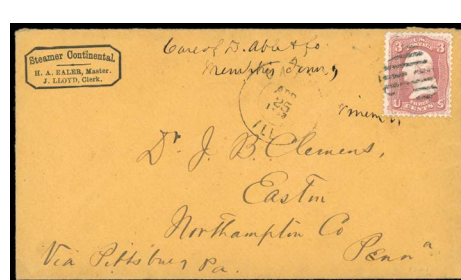 Steamer Continental.
H. A. EALER, Master.
J. LLOYD, Clerk.
Care of D. Able & Co
Memphis Tenn
3 3
U S
25
ILL
Dr. J. B. Clemens,
Easton
Northampton Co
Penna
Via Pittsburg Pa.